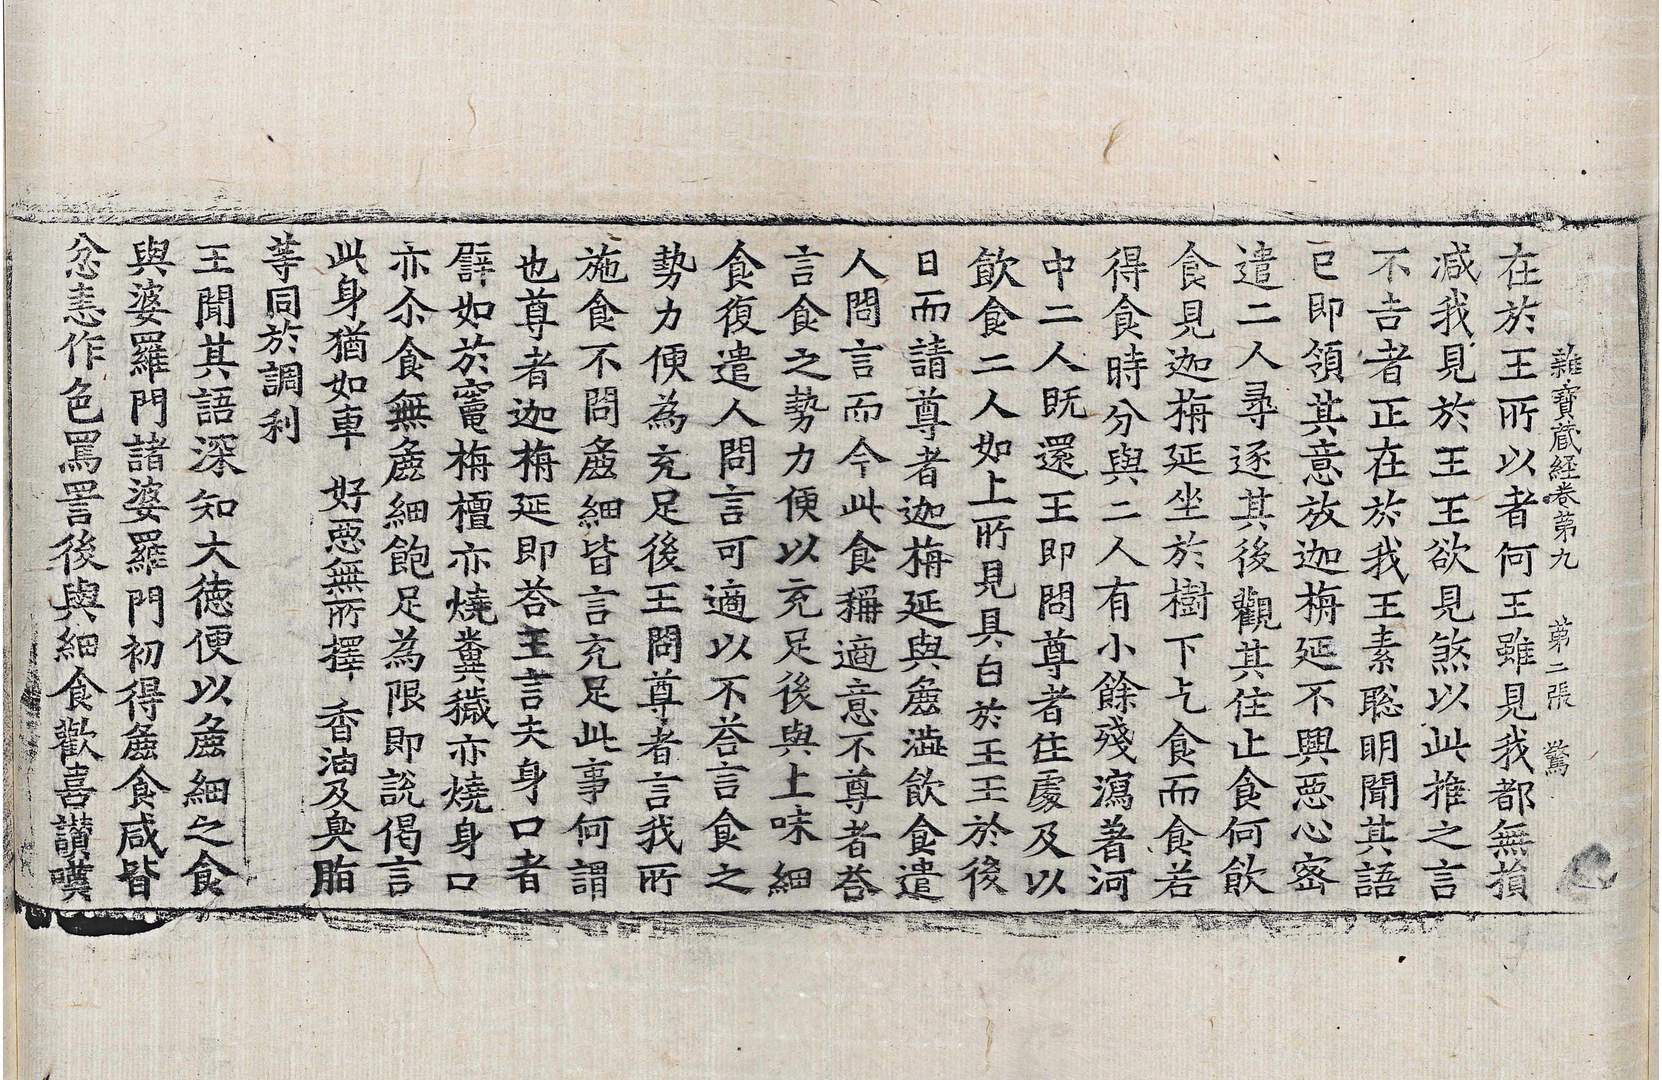 雜寶蔵経巻第九 第二張 驚
在於王所以者何王雖見我都無損
減我見於王王欲見煞以此推之言
不吉者正在於我王素聡明聞其語
已即領其意放迦栴延不興惡心密
遣二人尋逐其後觀其住止食何飲
食見迦栴延坐於樹下乞食而食若
得食時分與二人有小餘殘瀉著河
中二人既還王即問尊者住處及以
飲食二人如上所見具白於王王於後
日而請尊者迦栴延與麁澁飲食遣
人問言而今此食稱適意不尊者荅
言食之勢力便以充足後與上味細
食復遣人問言可適以不荅言食之
勢力便為充足後王問尊者言我所
施食不問麁細皆言充足此事何謂
也尊者迦栴延即荅王言夫身口者
譬如於竈栴檀亦燒糞穢亦燒身口
亦尒食無麁細飽足為限即說偈言
此身猶如車 好惡無所擇 香油及臭脂
等同於調利
王聞其語深知大德便以麁細之食
與婆羅門諸婆羅門初得麁食咸皆
忿恚作色罵詈後與細食歡喜讃嘆